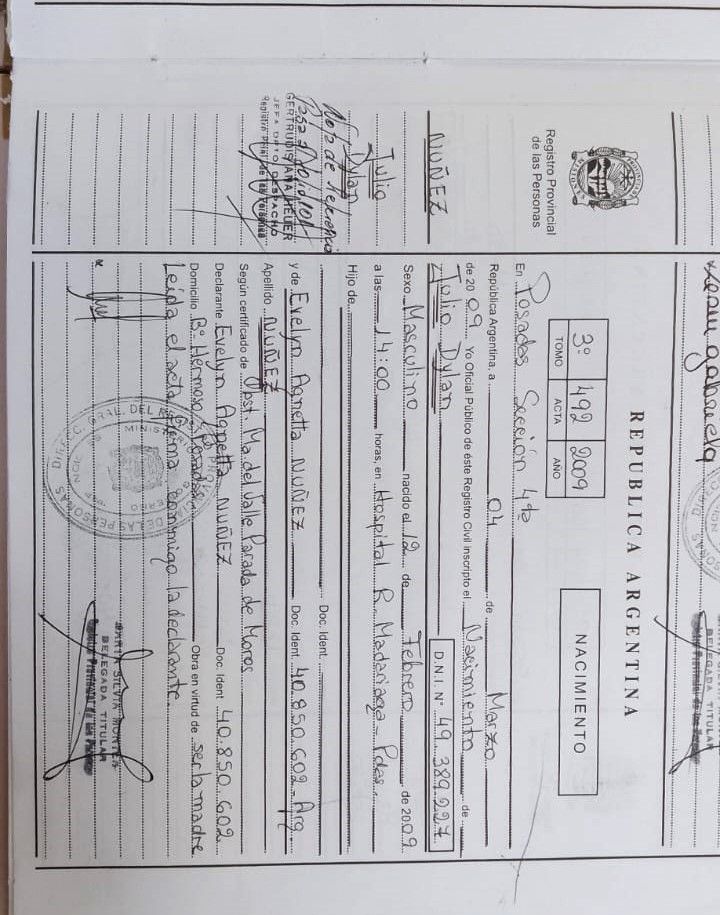 REPUBLICA ARGENTINA
Registro Provincial
de las Personas
3º 492 2009
TOMO ACTA AÑO
NACIMIENTO
En Posadas Sección 4ta
República Argentina, a 04 de Marzo
de 2009 Yo Oficial Público de éste Registro Civil inscripto el Nacimiento de
NUÑEZ
Julio Dylan D.N.I. Nº 49.389.227
Sexo Masculino nacido el 12 de Febrero de 2009
Julio
Dylan
a las 14:00 horas, en Hospital R. Madariaga - Pdas.
Hijo de
Doc. Ident.
Nota de Referencia
y de Evelyn Agnetta NUÑEZ Doc. Ident 40.850.602 - Arg
GERTRUDIS ANA HEUER
JEFA DPTO DESPACHO
Registro Provincial de las Personas
Apellido NUÑEZ
Según certificado de Obst. Ma. del Valle Parada de Moros
Declarante Evelyn Agnetta NUÑEZ Doc. Ident 40.850.602
Domicilio Bº Hermoso Posadas Obra en virtud de ser la madre
Leída el acta firma conmigo la declarante.
DELEGADA TITULAR
Registro Provincial de las Personas
gabriela
DELEGADA TITULAR